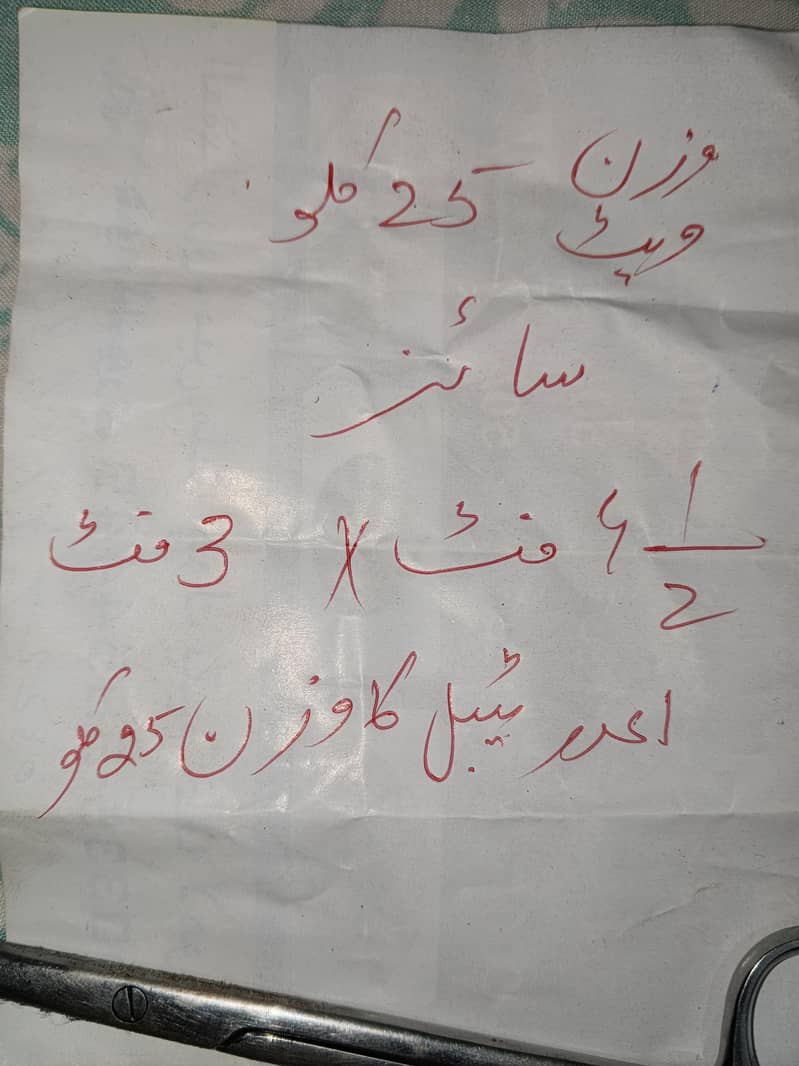 وزن
ویٹ 25 کلو
سائز
4 1/2 فٹ X 3 فٹ
1 عدد ٹیبل کا وزن 25 کلو